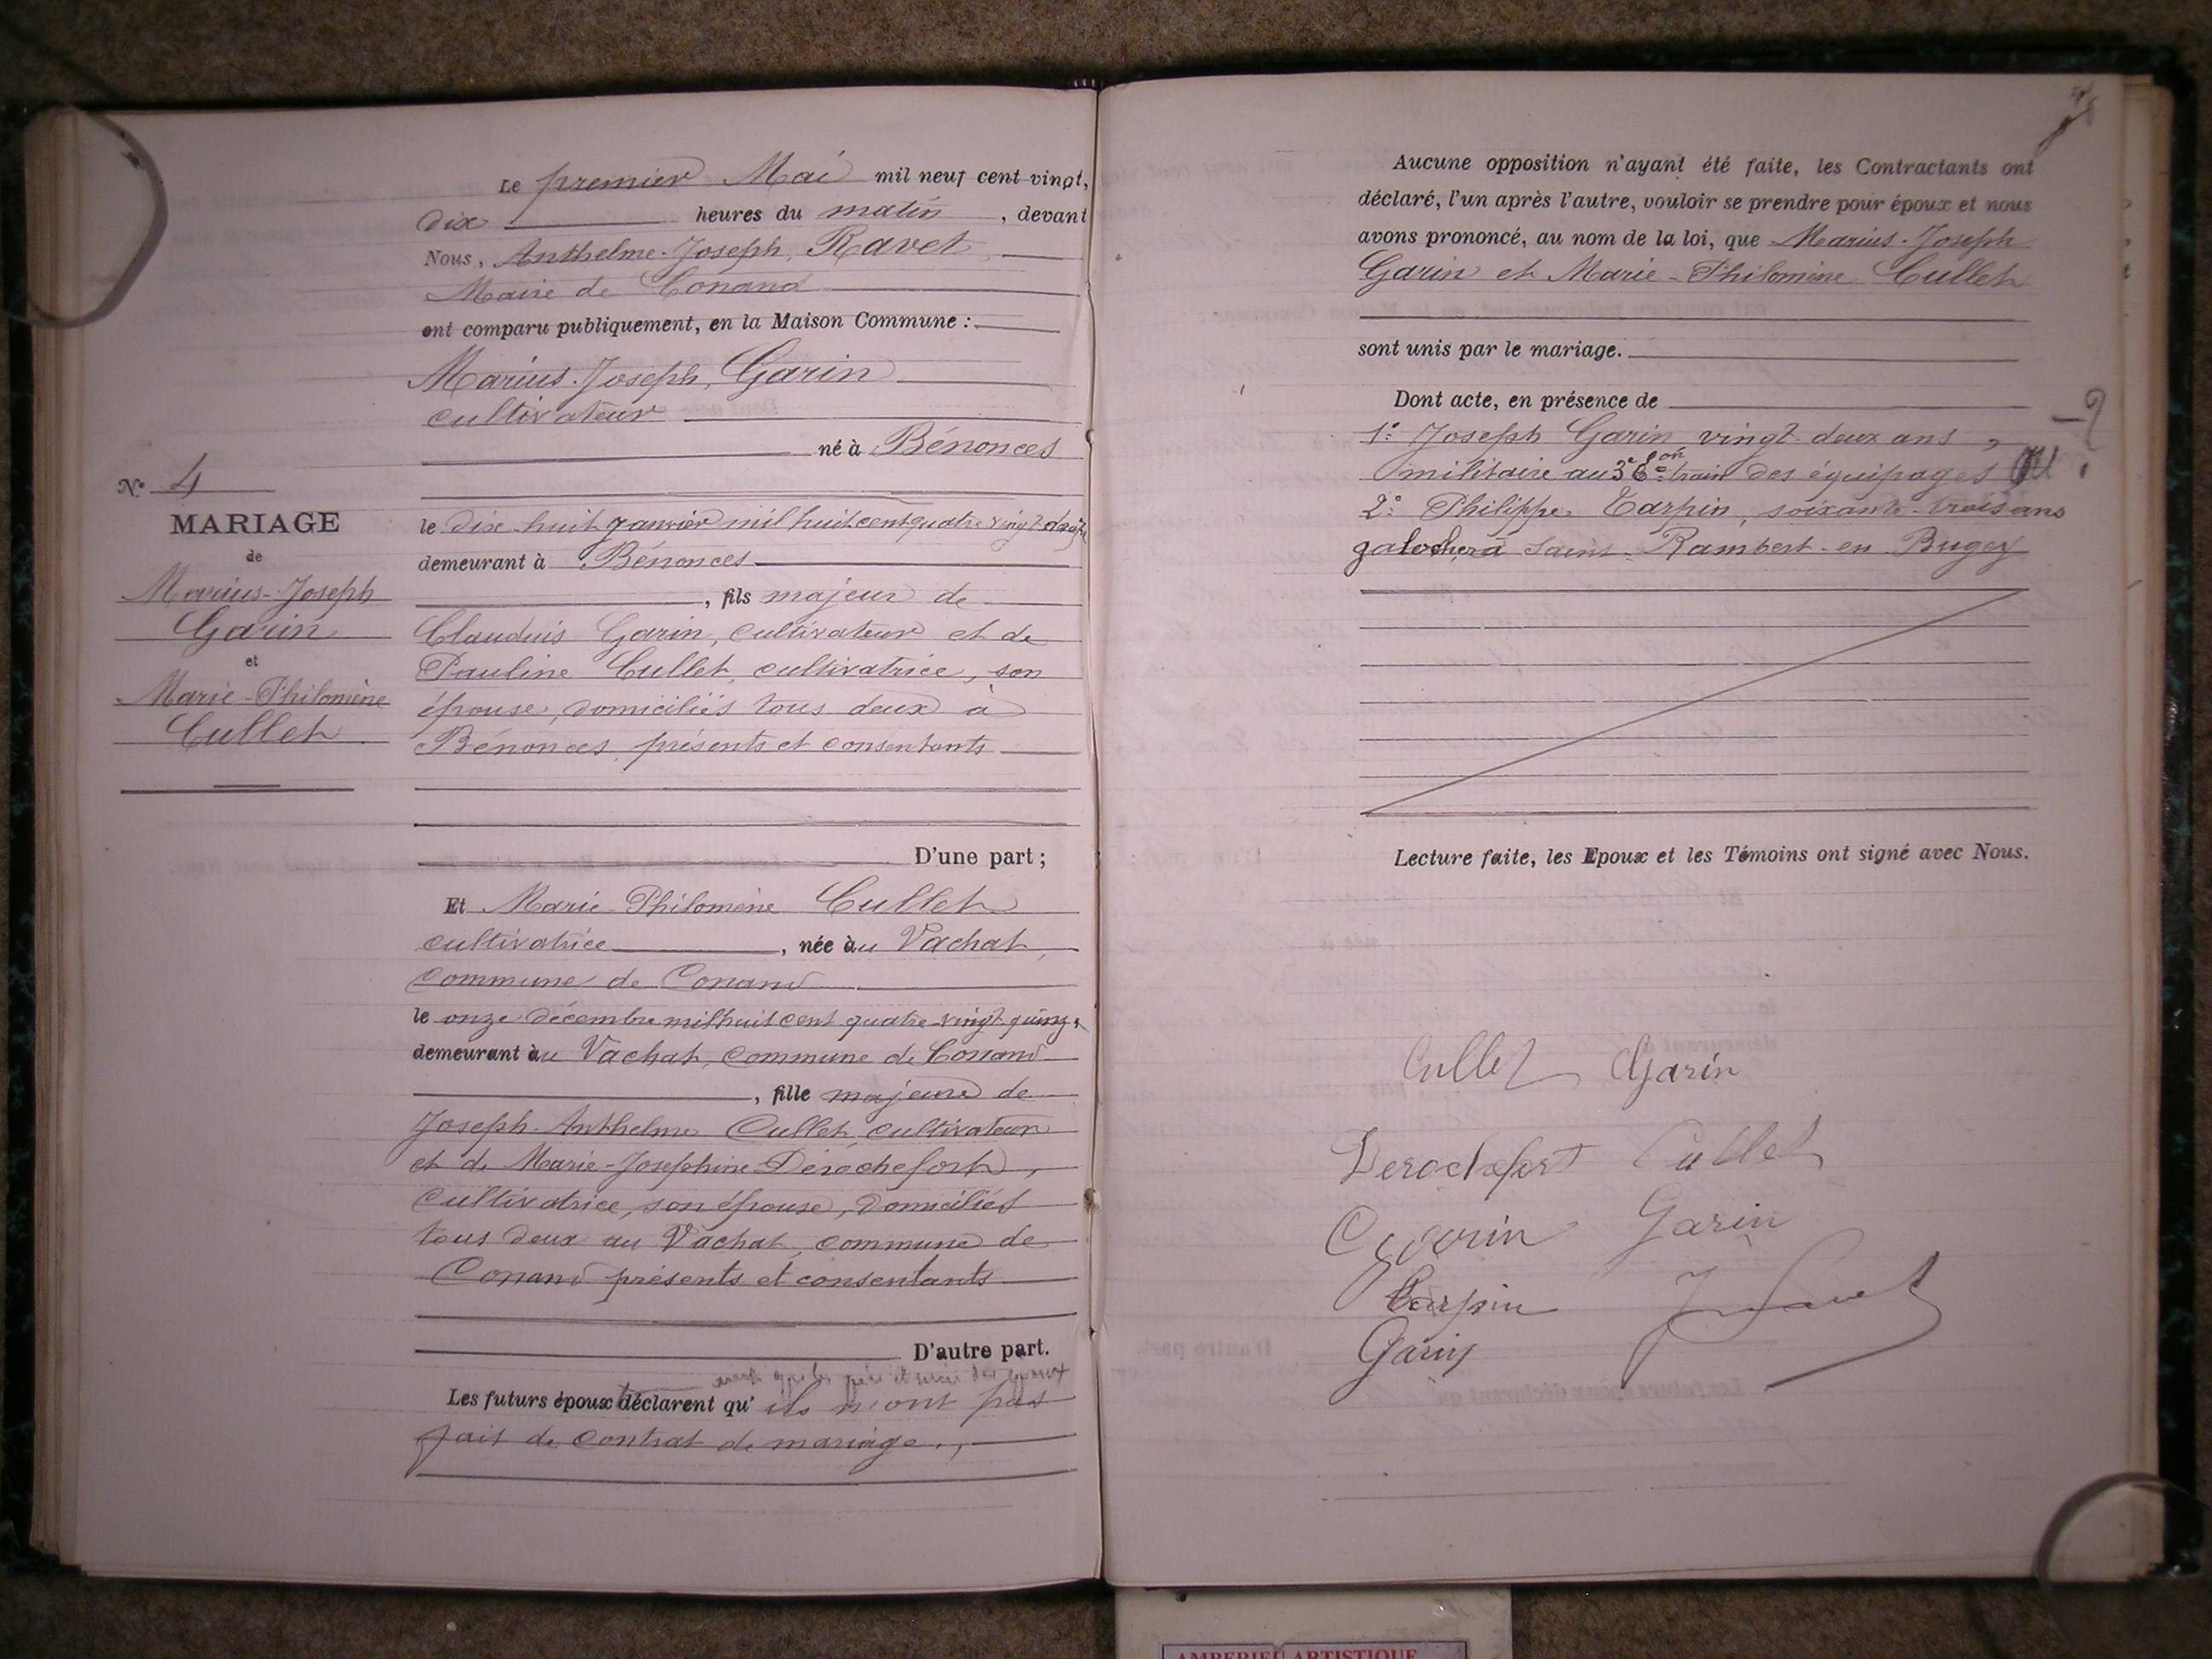 Le premier Mai mil neuf cent vingt,
dix heures du matin, devant
Nous, Anthelme-Joseph, Ravet
Maire de Conand
ont comparu publiquement, en la Maison Commune :
Marius-Joseph, Garin
cultivateur
né à Bénonces
le dix-huit janvier mil huit cent quatre vingt
demeurant à Bénonces
, fils majeur de
Claudius Garin, cultivateur et de
Pauline Cullet, cultivatrice, son
épouse, domiciliés tous deux à
Bénonces, présents et consentants
D'une part ;
Et Marie-Philomène Cullet
cultivatrice, née au Vachat,
commune de Conand
le onze décembre mil huit cent quatre-vingt quinze,
demeurant au Vachat, commune de Conand
, fille majeure de
Joseph-Anthelme Cullet, cultivateur
et de Marie-Josephine Dérochefort,
cultivatrice, son épouse, domiciliés
tous deux au Vachat, commune de
Conand présents et consentants
D'autre part.
père et mère des époux
Les futurs époux déclarent qu'ils n'ont pas
fait de contrat de mariage.,
N° 4
MARIAGE
de
Marius-Joseph
Garin
et
Marie-Philomène
Cullet
Aucune opposition n'ayant été faite, les Contractants ont
déclaré, l'un après l'autre, vouloir se prendre pour époux et nous
avons prononcé, au nom de la loi, que Marius-Joseph
Garin et Marie-Philomène Cullet
sont unis par le mariage.
Dont acte, en présence de
1° Joseph Garin vingt-deux ans,
militaire au train des équipages
2° Philippe Tarpin, soixante-trois ans
galocher à Saint-Rambert-en-Bugey
Lecture faite, les Epoux et les Témoins ont signé avec Nous.
Cullet Garin
Derochefort Cullet
C Garin Garin
Tarpin J Ravet
Garin
AMBERIEU ARTISTIQUE